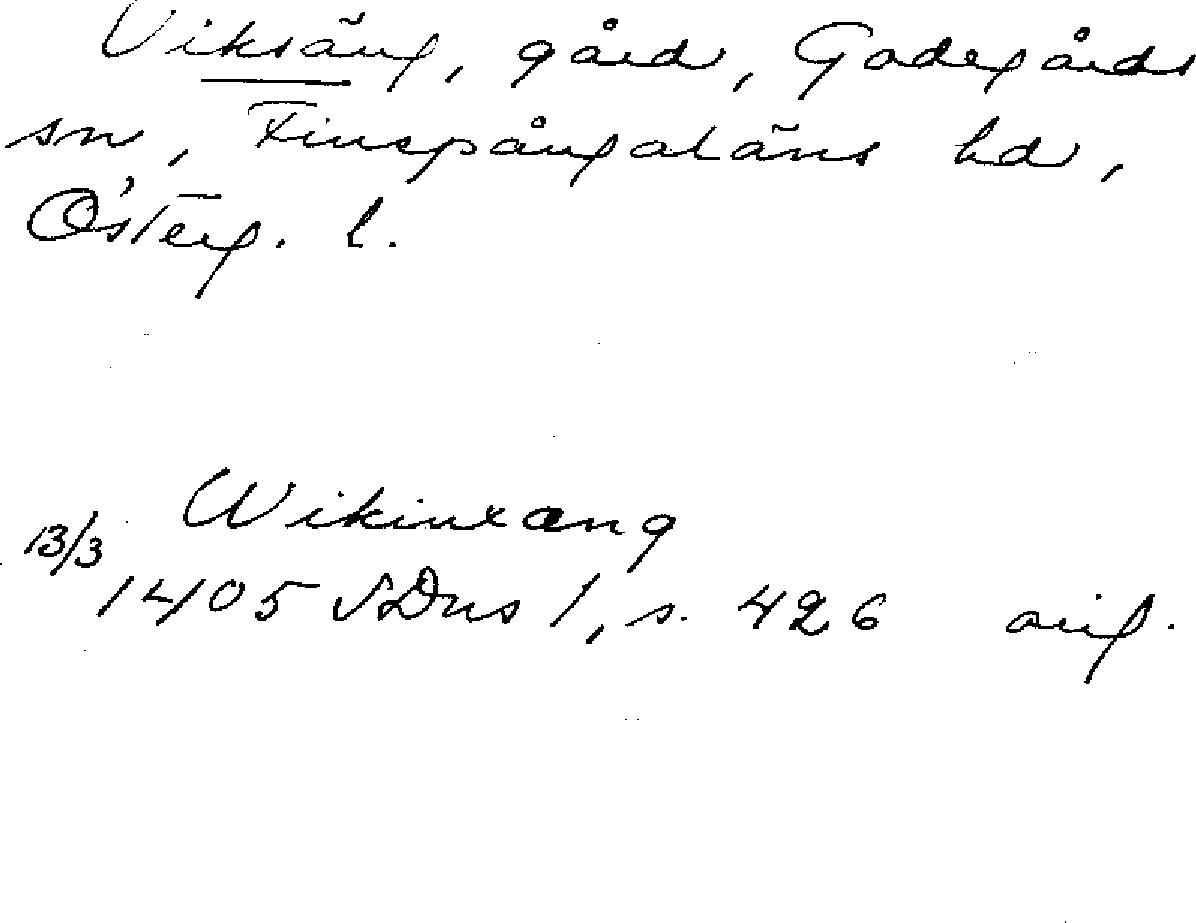 Viksäng, gård, Godegårds
sn, Finspångaläns hd,
Österg. l.
Wikinxæng
13/3
1405 SDns 1, s. 426 orig.